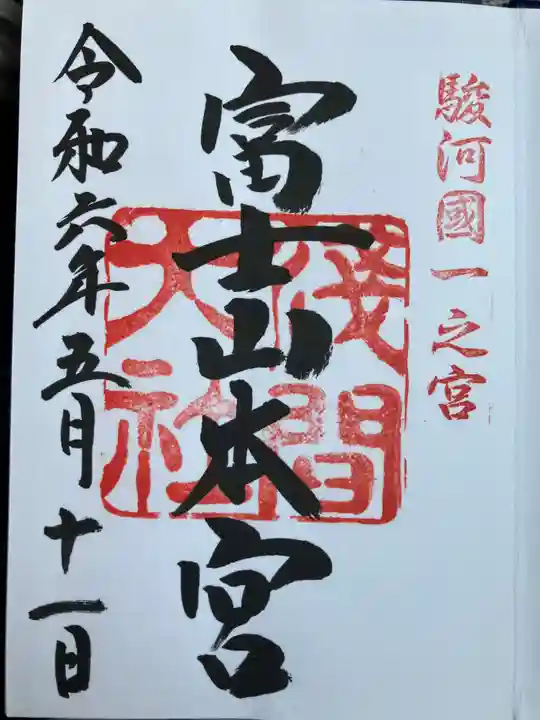 駿河國一之宮
富士山本宮
淺間
大社
令和六年五月十一日